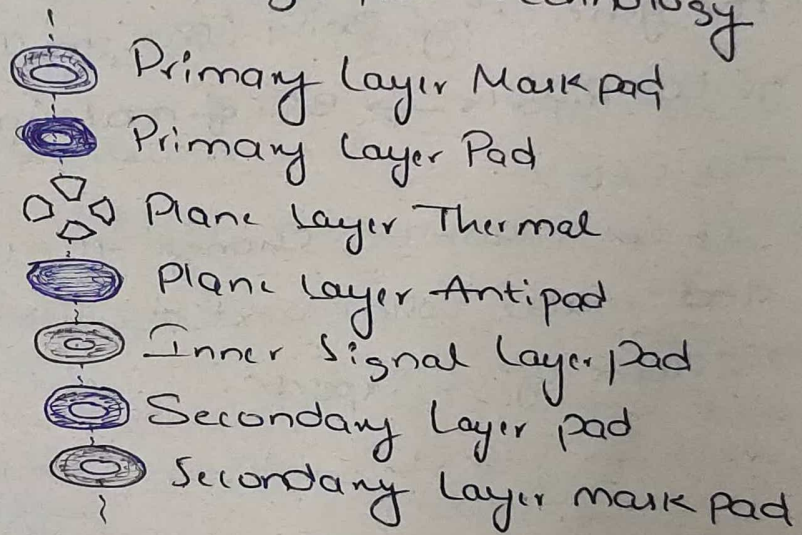 Primary Layer Mask pad
Primary Layer Pad
Plane Layer Thermal
Plane Layer Antipad
Inner Signal Layer pad
Secondary Layer pad
Secondary Layer mask pad